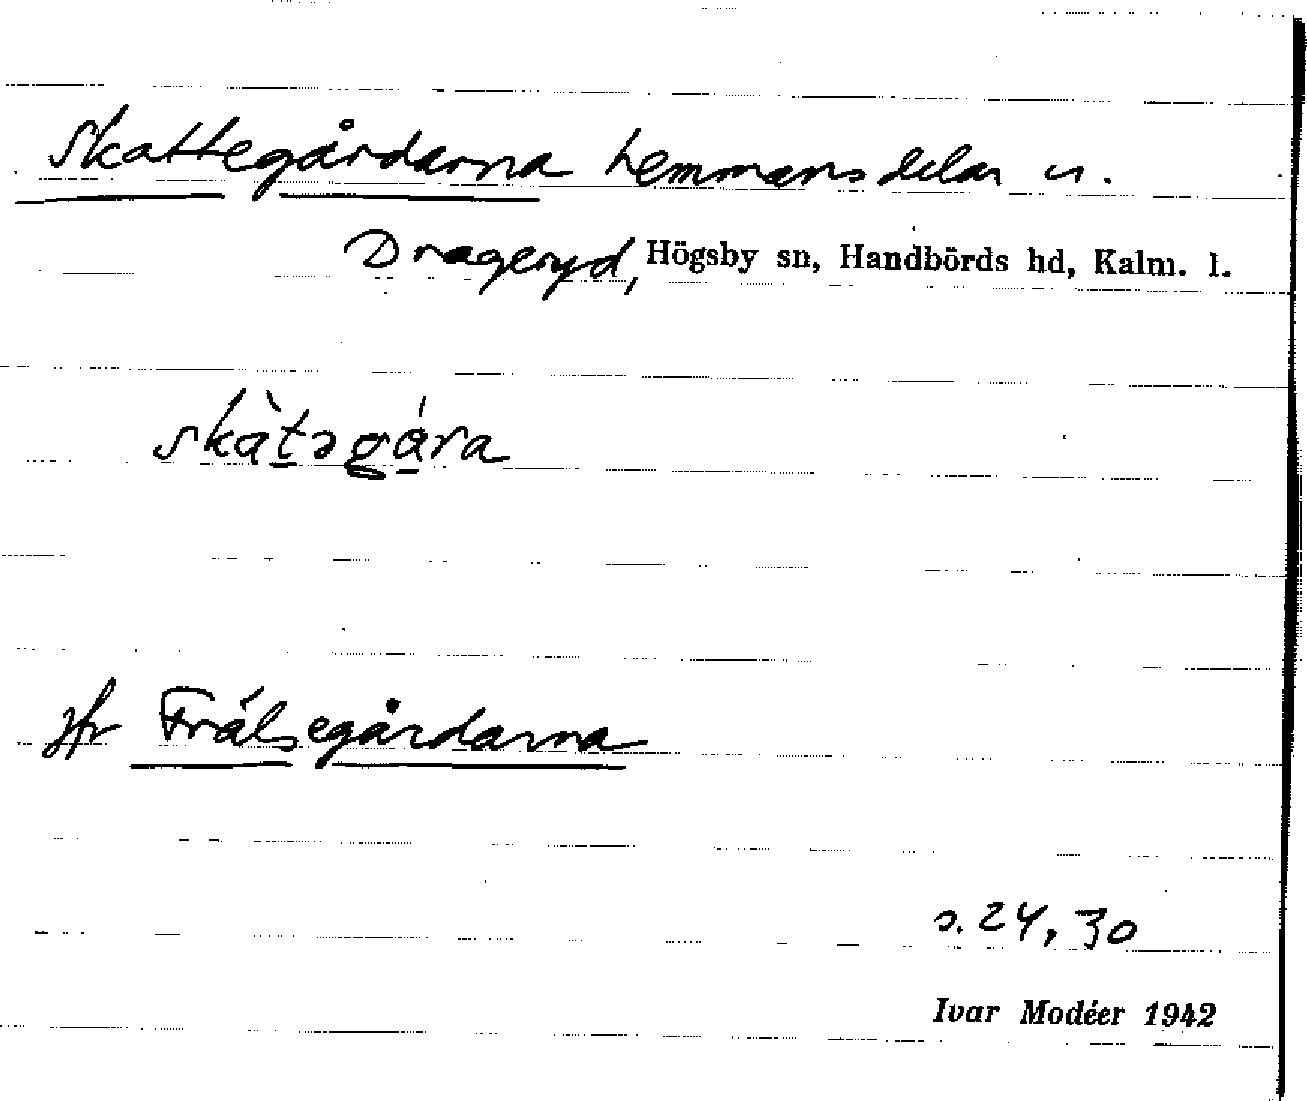 Skattegårdarna hemmansdelar u.
Drageryd, Högsby sn, Handbörds hd, Kalm. l.
skàtəgára
jfr Frälsegårdarna
s. 24, 30
Ivar Modéer 1942